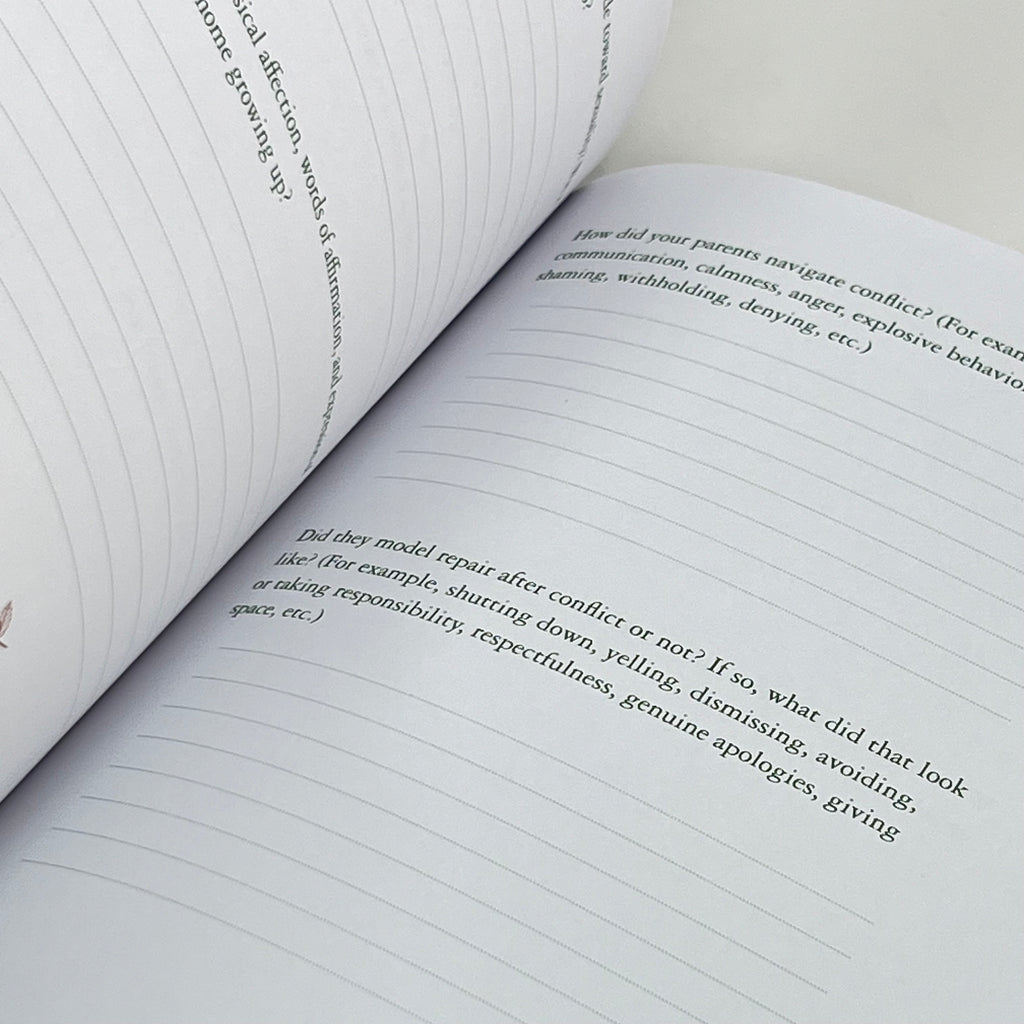 sical affection, words of affirmation, and
home growing up?
toward
How did your parents navigate conflict? (For exam
communication, calmness, anger, explosive behavior
shaming, withholding, denying, etc.)
Did they model repair after conflict or not? If so, what did that look
like? (For example, shutting down, yelling, dismissing, avoiding,
or taking responsibility, respectfulness, genuine apologies, giving
space, etc.)